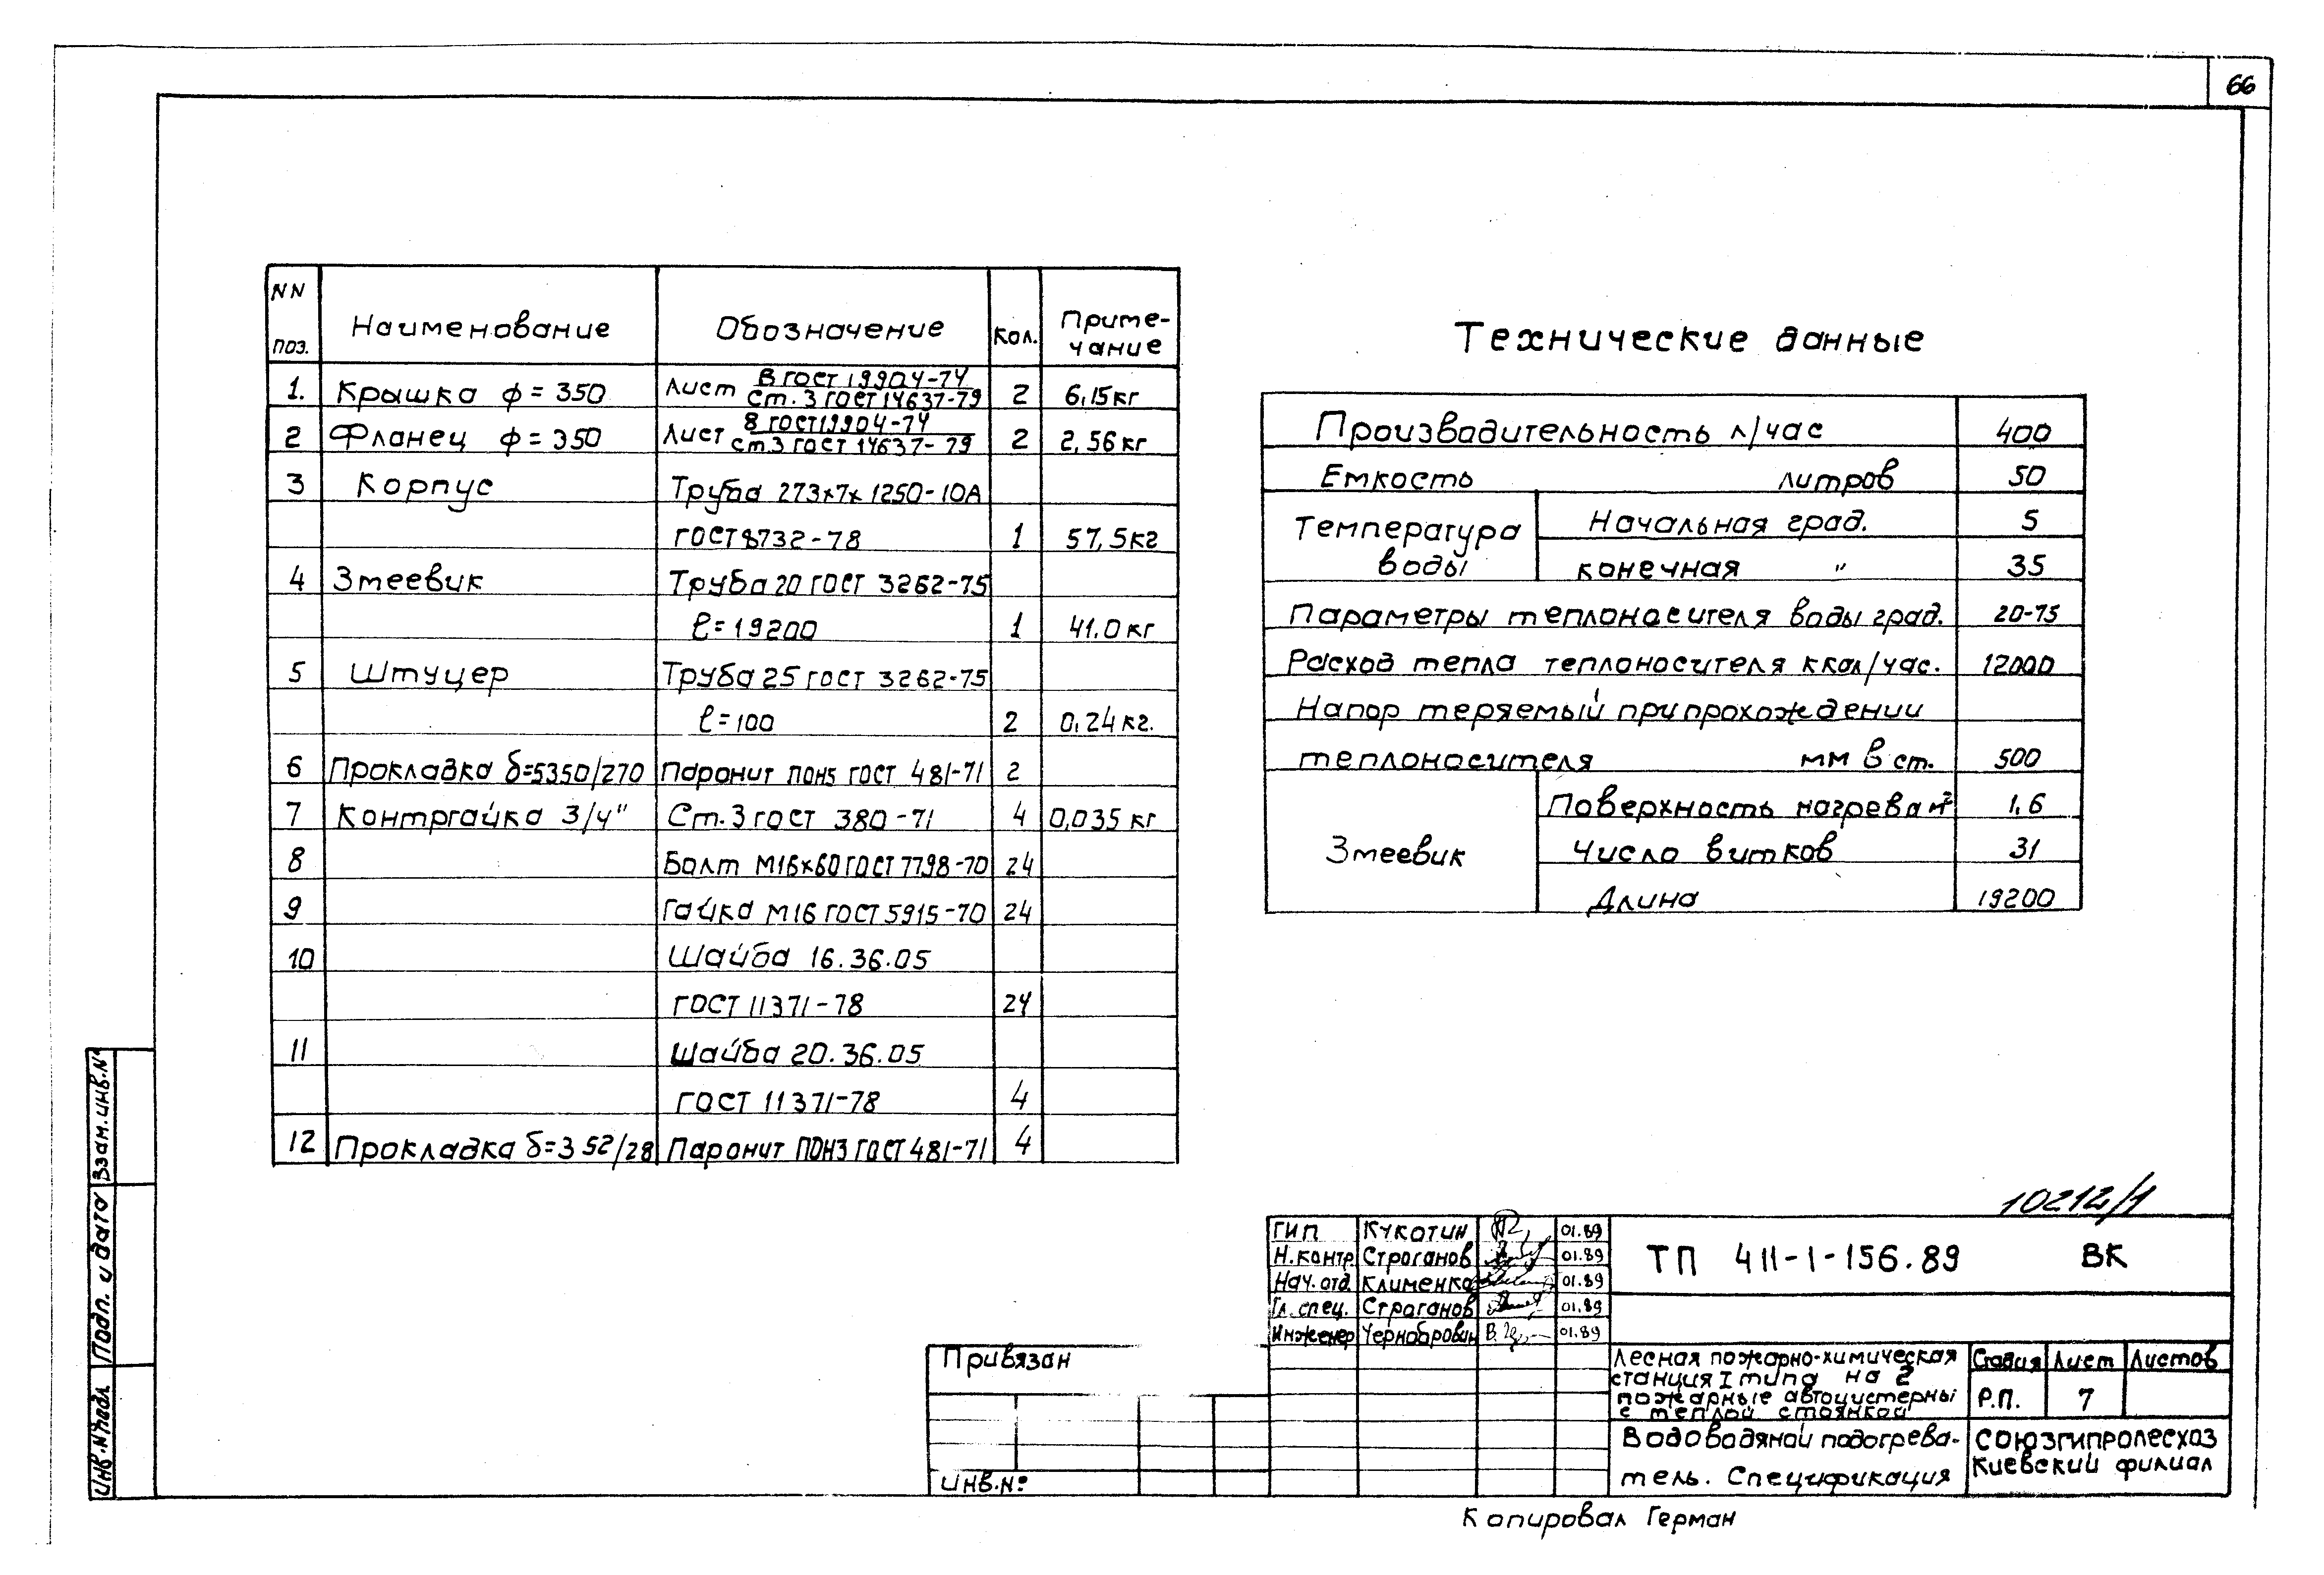 66
NN поз. Наименование Обозначение Кол. Приме-чание
1. Крышка ф=350 Лист В ГОСТ 19904-74 / Ст.3 ГОСТ 14637-79 2 6,15кг
2 Фланец ф=350 Лист 8 ГОСТ19904-74 / Ст.3 ГОСТ 14637-79 2 2,56кг
3 Корпус Труба 273х7х1250-10А
ГОСТ8732-78 1 57,5кг
4 Змеевик Труба 20 ГОСТ 3262-75
ℓ=19200 1 41.0кг
5 Штуцер Труба 25 ГОСТ 3262-75
ℓ=100 2 0,24кг.
6 Прокладка δ=5350/270 Паронит ПОН5 ГОСТ 481-71 2
7 Контргайка 3/4" Ст.3 ГОСТ 380-71 4 0,035кг
8 Болт М16х60 ГОСТ 7798-70 24
9 Гайка М16 ГОСТ 5915-70 24
10 Шайба 16.36.05
ГОСТ 11371-78 24
11 Шайба 20.36.05
ГОСТ 11371-78 4
12 Прокладка δ=3 52/28 Паронит ПОН3 ГОСТ 481-71 4
Технические данные
Производительность л/час 400
Емкость литров 50
Температура воды Начальная град. 5
конечная " 35
Параметры теплоносителя воды град. 20-75
Расход тепла теплоносителя ккал/час. 12000
Напор теряемый при прохождении
теплоносителя мм в ст. 500
Змеевик Поверхность нагрева м² 1.6
Число витков 31
Длина 19200
10212/1
ГИП Кукотин 01.89
Н.контр. Строганов 01.89
Нач.отд. Клименко 01.89
Гл.спец. Строганов 01.89
Инженер Чернобровин 01.89
ТП 411-1-156.89 ВК
Лесная пожарно-химическая
станция I типа на 2
пожарные автоцистерны
с теплой стоянкой
Стадия Лист Листов
Р.П. 7
Водоводяной подогрева-
тель. Спецификация
Союзгипролесхоз
Киевский филиал
Привязан
Инв.№
Взам.инв.№
Подп. и дата
Инв.№подл
Копировал Герман